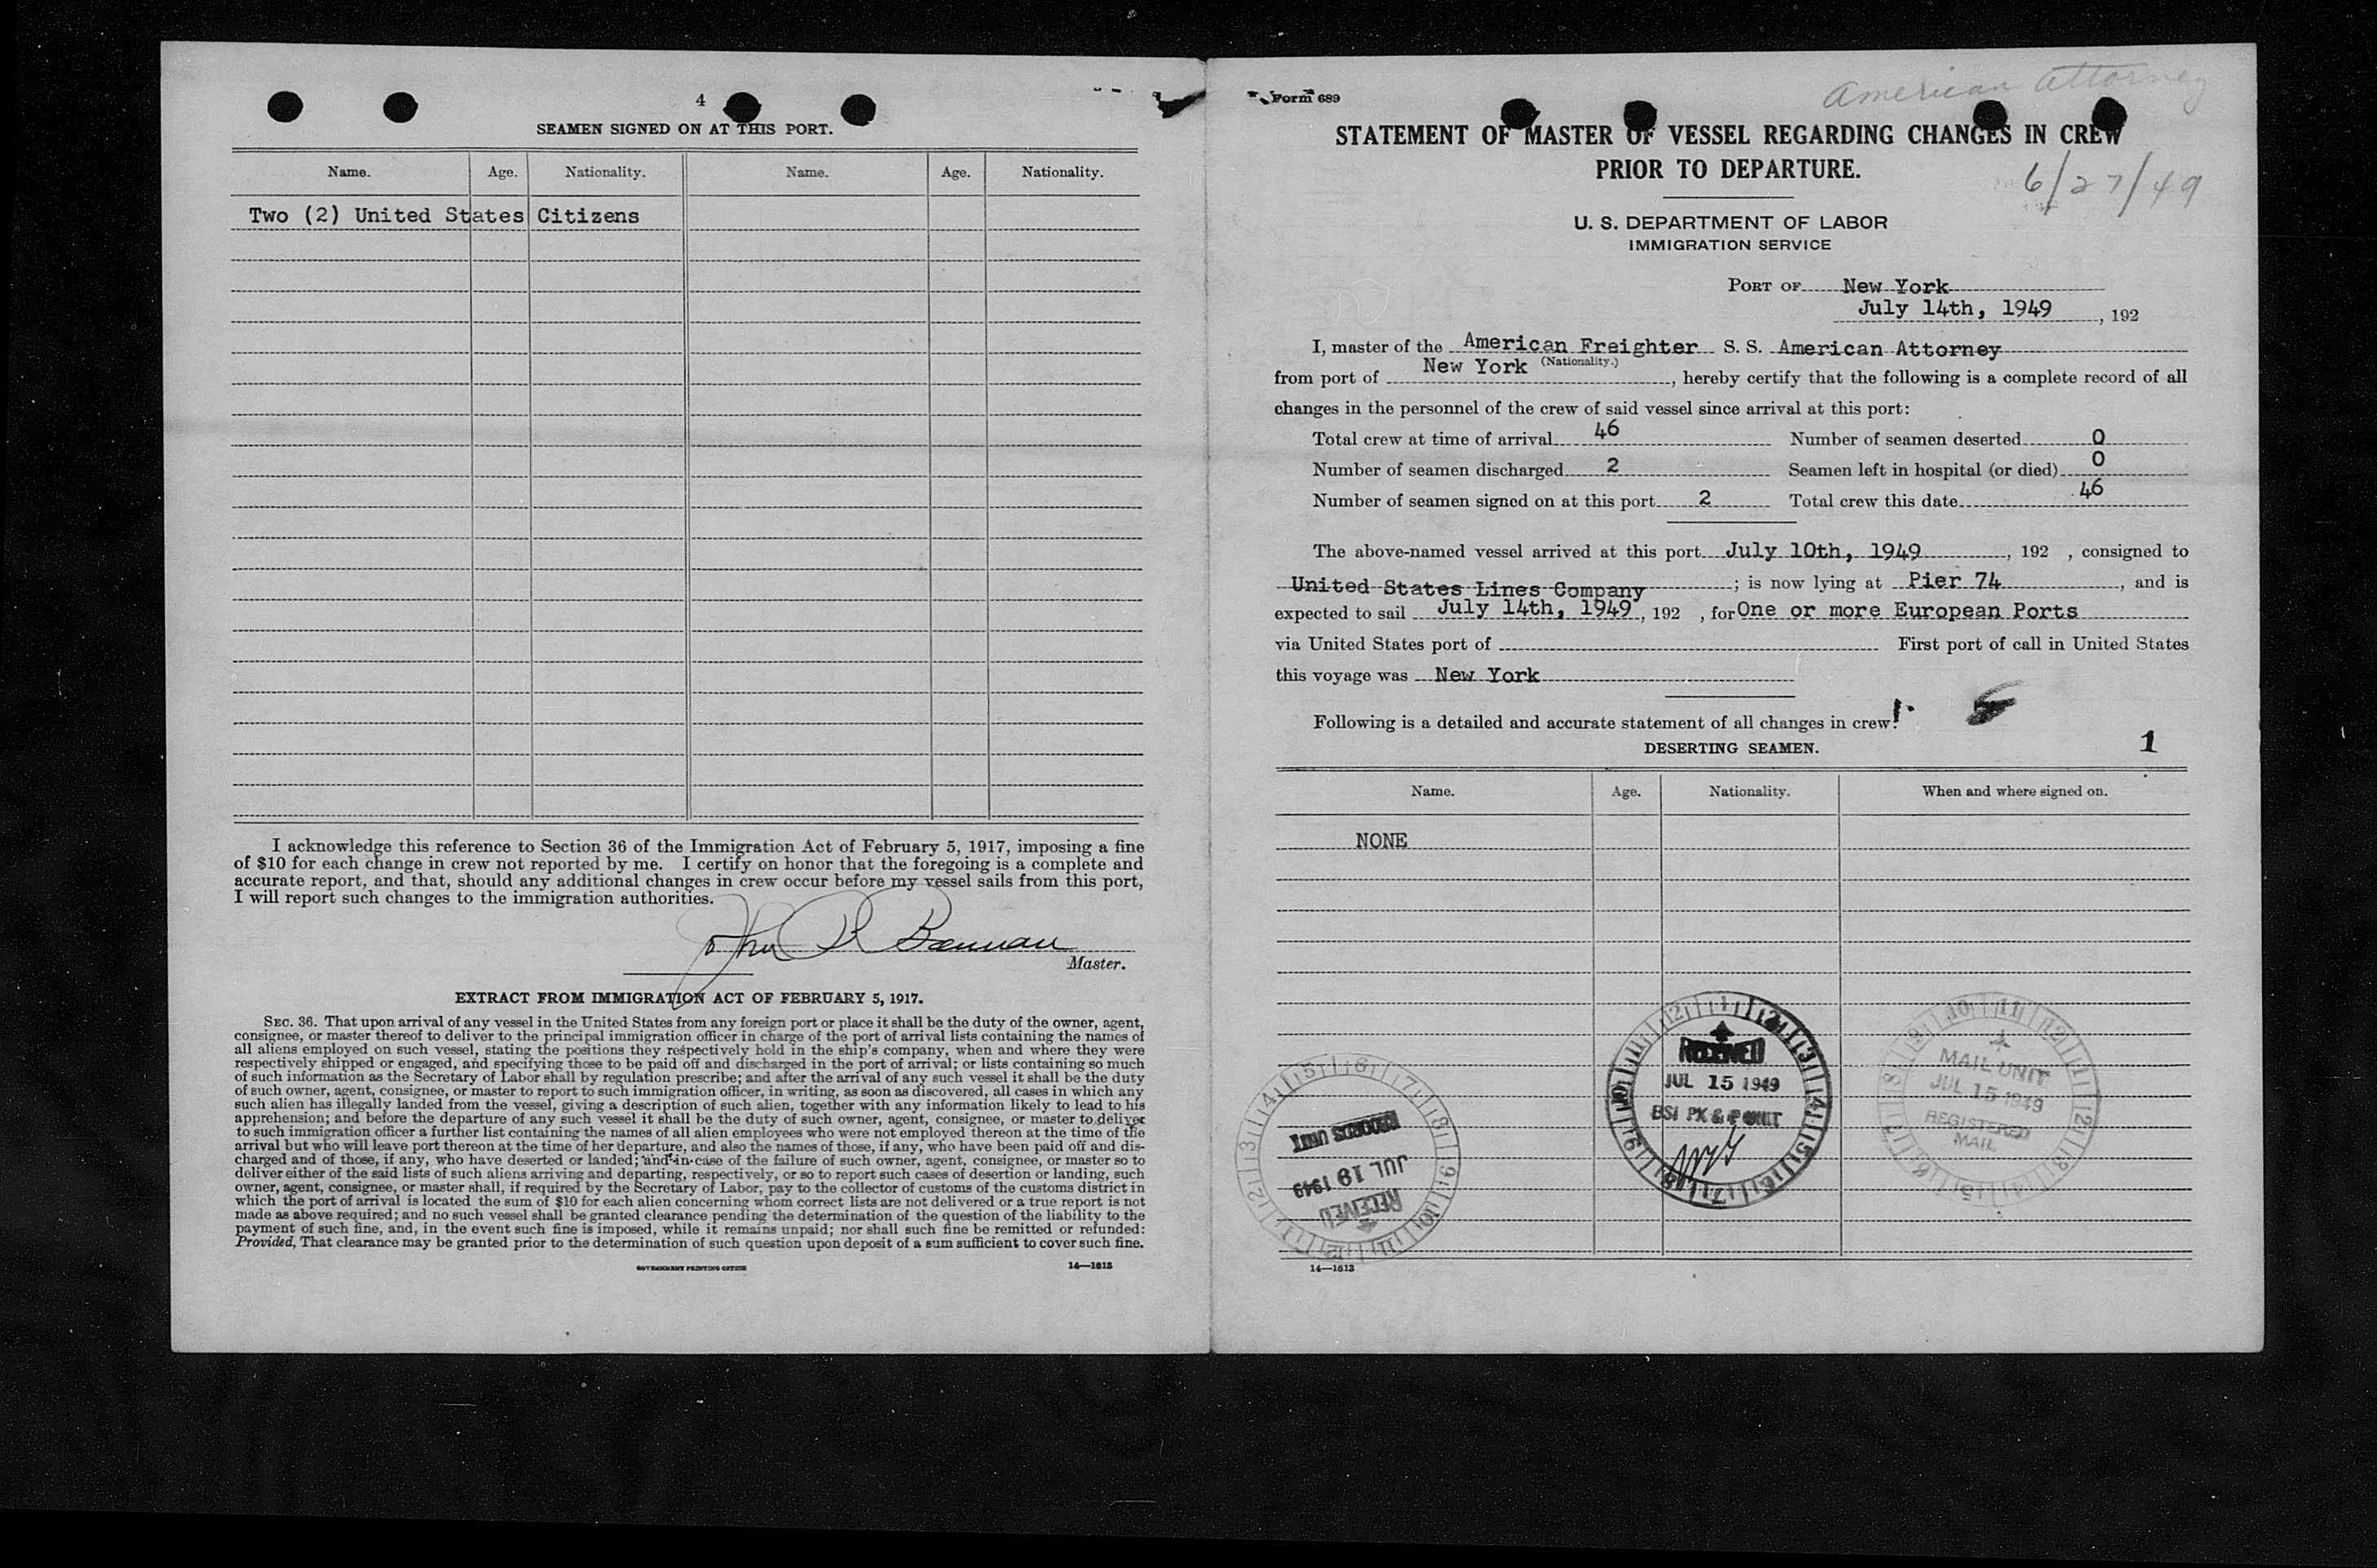 4
SEAMEN SIGNED ON AT THIS PORT.
Name. Age. Nationality. Name. Age. Nationality.
Two (2) United States Citizens
I acknowledge this reference to Section 36 of the Immigration Act of February 5, 1917, imposing a fine
of $10 for each change in crew not reported by me. I certify on honor that the foregoing is a complete and
accurate report, and that, should any additional changes in crew occur before my vessel sails from this port,
I will report such changes to the immigration authorities.
John
Master.
EXTRACT FROM IMMIGRATION ACT OF FEBRUARY 5, 1917.
SEC. 36. That upon arrival of any vessel in the United States from any foreign port or place it shall be the duty of the owner, agent,
consignee, or master thereof to deliver to the principal immigration officer in charge of the port of arrival lists containing the names of
all aliens employed on such vessel, stating the positions they respectively hold in the ship's company, when and where they were
respectively shipped or engaged, and specifying those to be paid off and discharged in the port of arrival; or lists containing so much
of such information as the Secretary of Labor shall by regulation prescribe; and after the arrival of any such vessel it shall be the duty
of such owner, agent, consignee, or master to report to such immigration officer, in writing, as soon as discovered, all cases in which any
such alien has illegally landed from the vessel, giving a description of such alien, together with any information likely to lead to his
apprehension; and before the departure of any such vessel it shall be the duty of such owner, agent, consignee, or master to deliver
to such immigration officer a further list containing the names of all alien employees who were not employed thereon at the time of the
arrival but who will leave port thereon at the time of her departure, and also the names of those, if any, who have been paid off and dis-
charged and of those, if any, who have deserted or landed; and in case of the failure of such owner, agent, consignee, or master so to
deliver either of the said lists of such aliens arriving and departing, respectively, or so to report such cases of desertion or landing, such
owner, agent, consignee, or master shall, if required by the Secretary of Labor, pay to the collector of customs of the customs district in
which the port of arrival is located the sum of $10 for each alien concerning whom correct lists are not delivered or a true report is not
made as above required; and no such vessel shall be granted clearance pending the determination of the question of the liability to the
payment of such fine, and, in the event such fine is imposed, while it remains unpaid; nor shall such fine be remitted or refunded:
Provided, That clearance may be granted prior to the determination of such question upon deposit of a sum sufficient to cover such fine.
GOVERNMENT PRINTING OFFICE 14—1613
American Attorney
Form 689
STATEMENT OF MASTER OF VESSEL REGARDING CHANGES IN CREW
PRIOR TO DEPARTURE.
6/27/49
U. S. DEPARTMENT OF LABOR
IMMIGRATION SERVICE
PORT OF New York
July 14th, 1949, 192
I, master of the American Freighter S. S. American Attorney
(Nationality.)
from port of New York, hereby certify that the following is a complete record of all
changes in the personnel of the crew of said vessel since arrival at this port:
Total crew at time of arrival 46 Number of seamen deserted 0
Number of seamen discharged 2 Seamen left in hospital (or died) 0
Number of seamen signed on at this port 2 Total crew this date 46
The above-named vessel arrived at this port July 10th, 1949, 192 , consigned to
United States Lines Company; is now lying at Pier 74, and is
expected to sail July 14th, 1949, 192 , for One or more European Ports
via United States port of First port of call in United States
this voyage was New York
Following is a detailed and accurate statement of all changes in crew:
DESERTING SEAMEN.
1
Name. Age. Nationality. When and where signed on.
NONE
RECEIVED
JUL 15 1949
BSI PX & P UNIT
MAIL UNIT
JUL 15 1949
REGISTERED
MAIL
RECEIVED
JUL 19 1949
RECORDS UNIT
14—1613